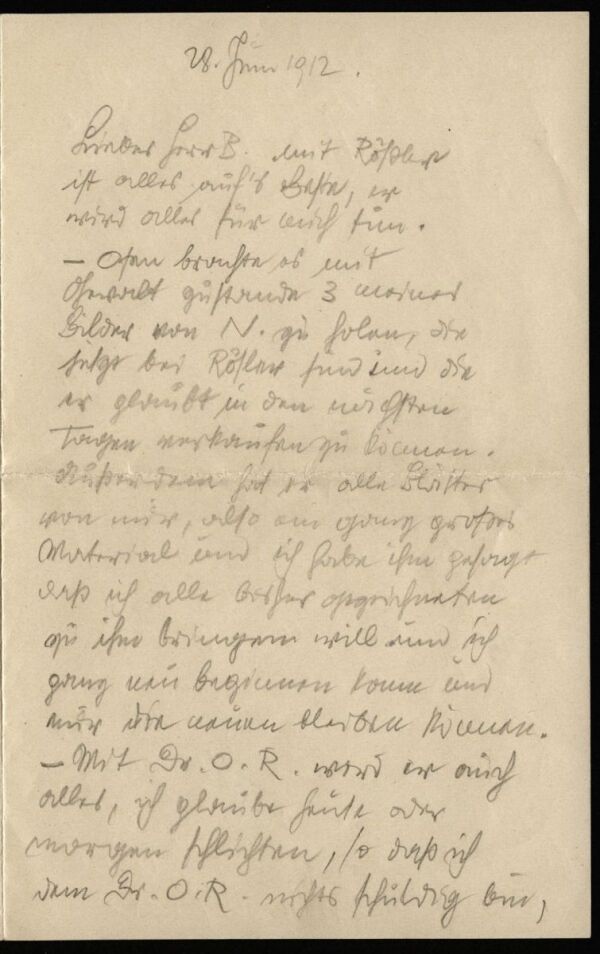 28. Juni 1912.
Lieber Herr B. mit Rößler
ist alles auf's Beste, er
wird alles für mich tun.
– Osen brachte es mit
Gewalt zustande 3 meiner
Bilder von N. zu holen, die
jetzt bei Rößler sind und die
er glaubt in den nächsten
Tagen verkaufen zu können.
Außerdem hat er alle Blätter
von mir, also ein ganz großes
Material und ich habe ihm gesagt
daß ich alle bisher gezeichneten
zu ihm bringen will und ich
ganz neu beginnen kann und
nur die neuen bleiben können.
– Mit Dr. O. R. wird er auch
alles, ich glaube heute oder
morgen schlichten, so daß ich
dem Dr. O. R. nichts schuldig bin,